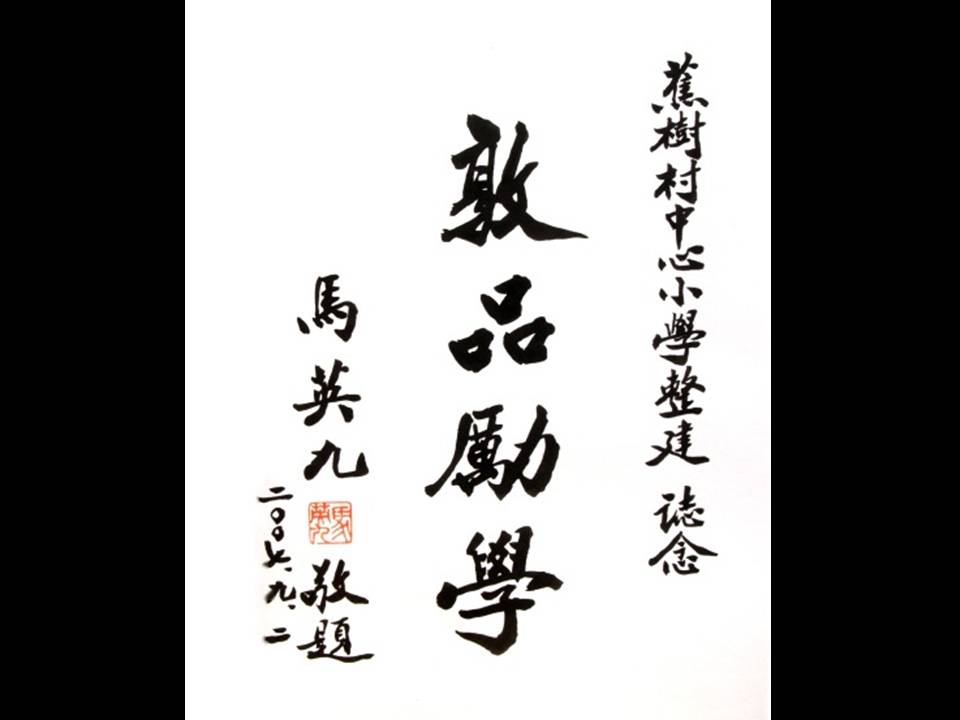 蕉樹村中心小學整建 誌念
敦品勵學
馬英九 敬題
二〇〇七、九、二